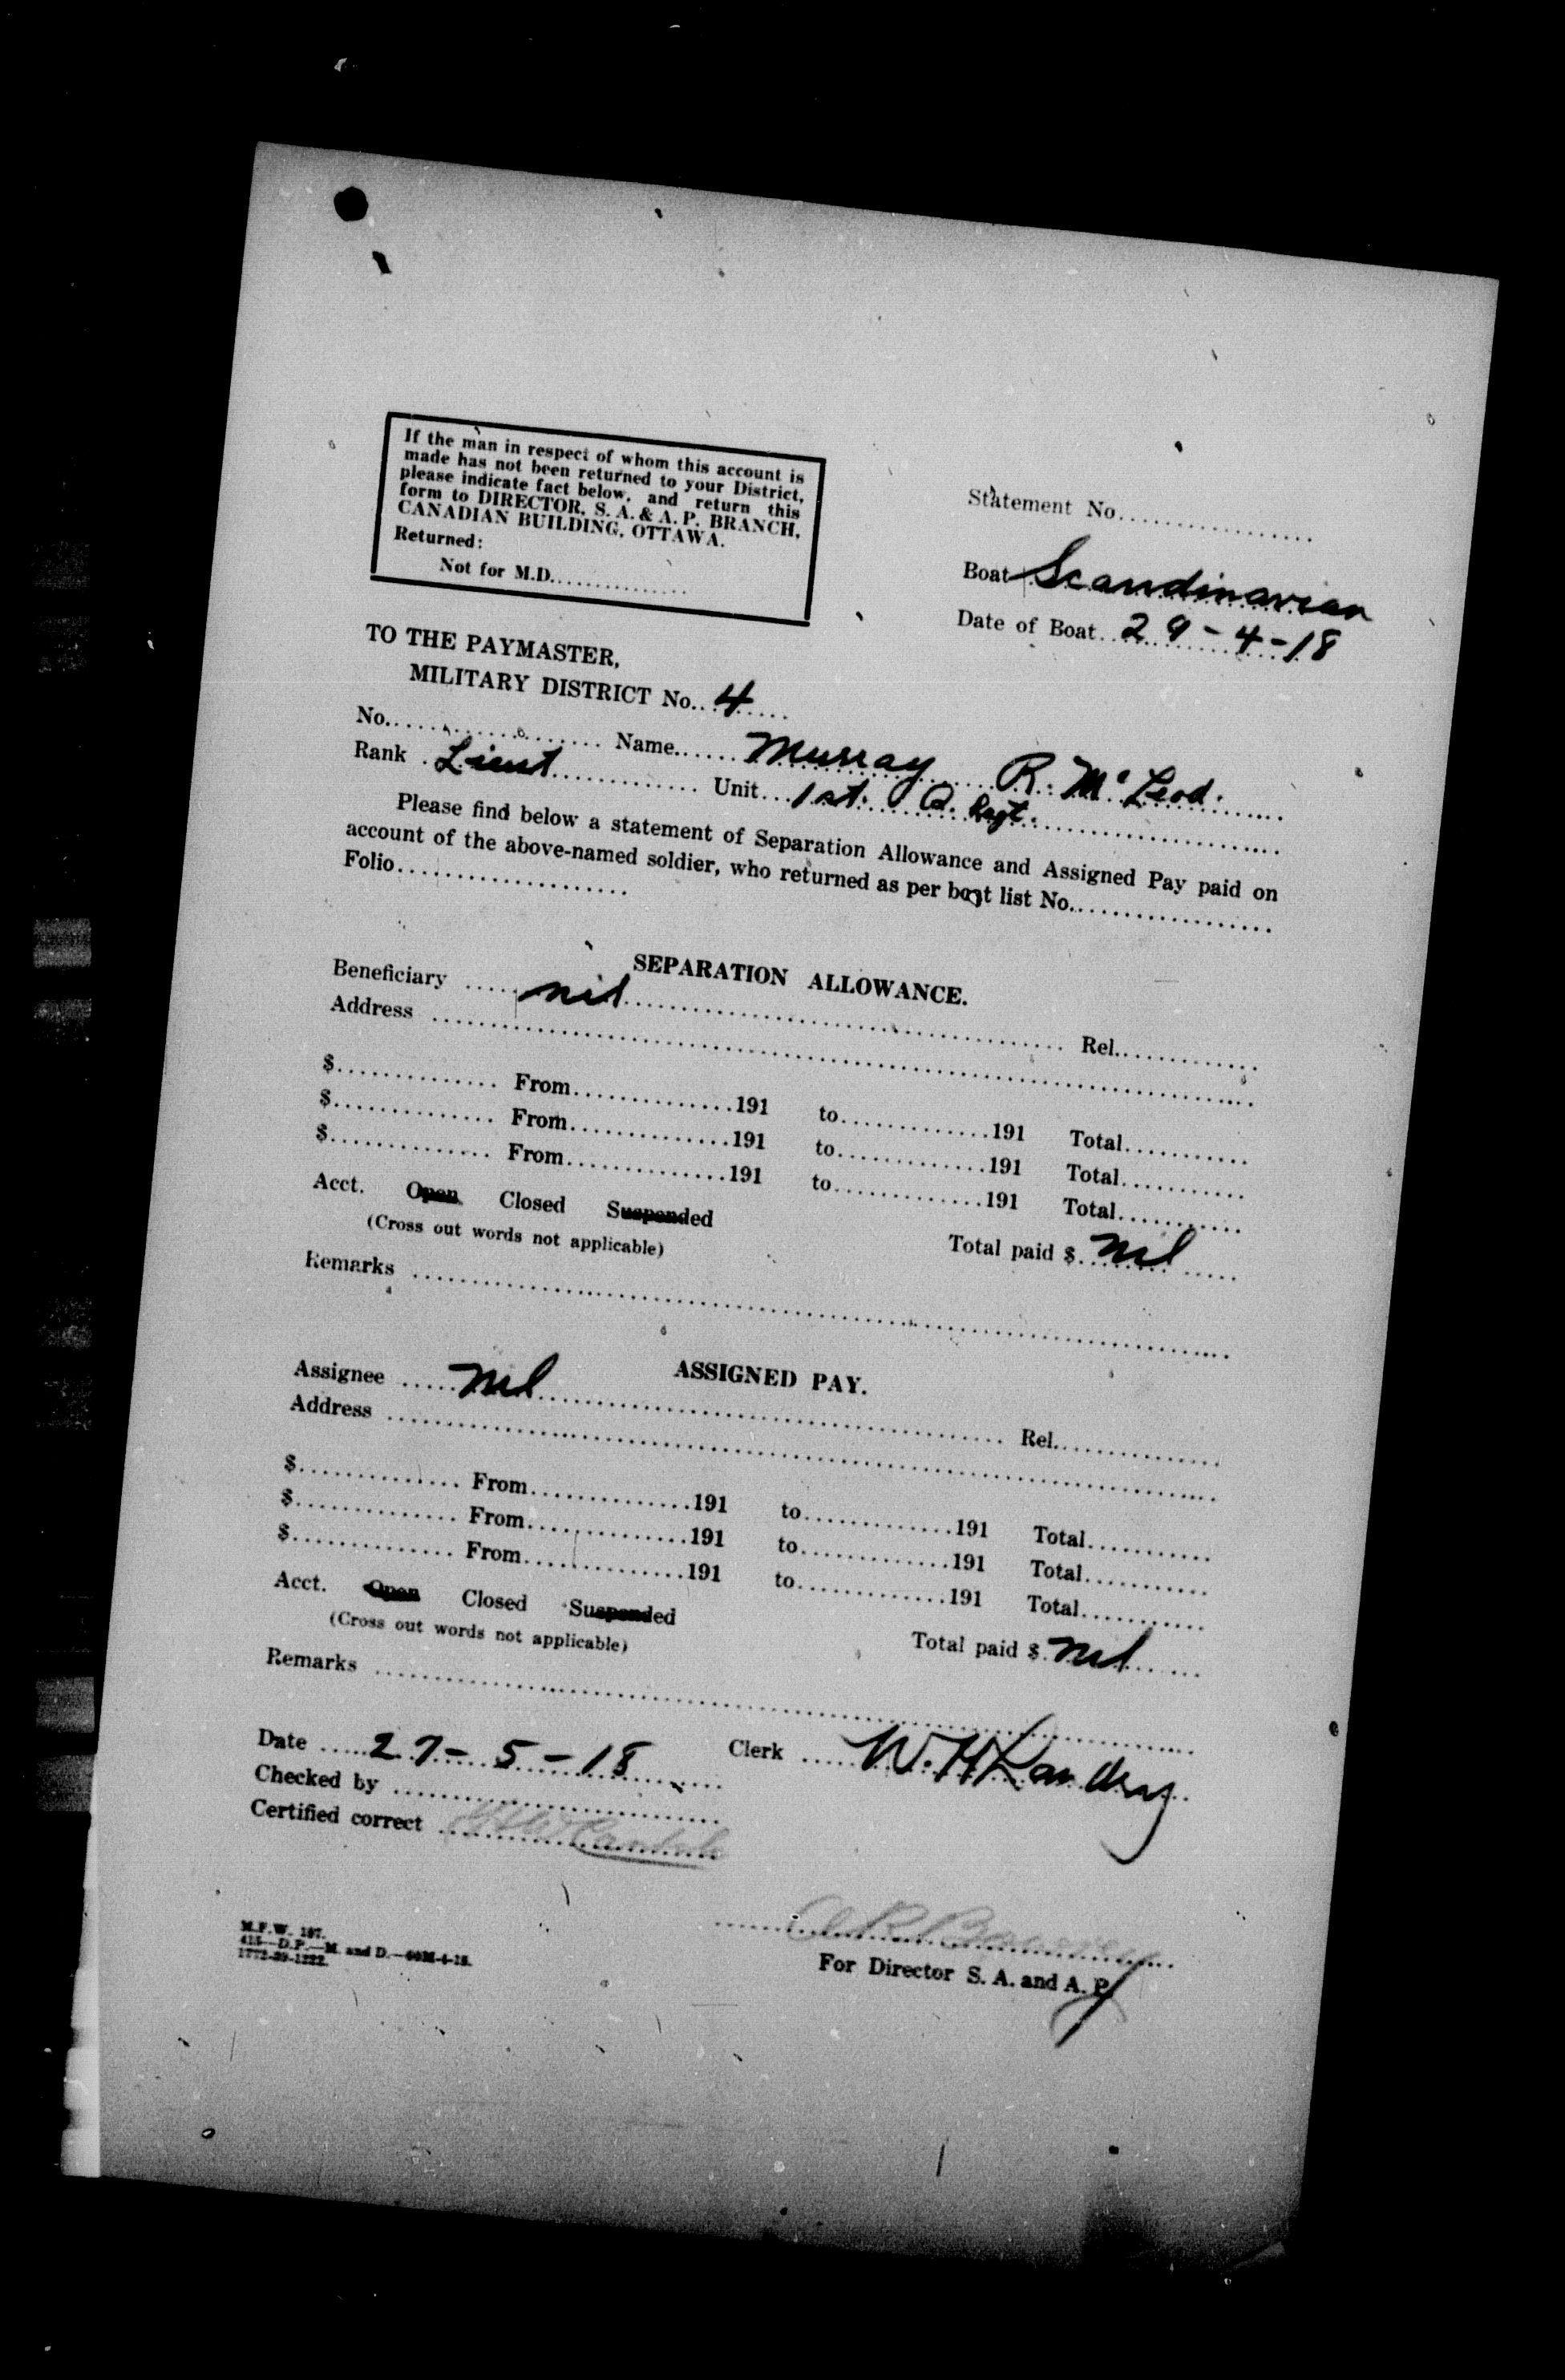 If the man in respect of whom this account is
made has not been returned to your District,
please indicate fact below, and return this
form to DIRECTOR, S. A. & A. P. BRANCH,
CANADIAN BUILDING, OTTAWA.
Returned:
Not for M.D...............
Statement No.................
Boat Scandinavian
Date of Boat 29-4-18
TO THE PAYMASTER,
MILITARY DISTRICT No. 4
No. Name Murray R. McLeod.
Rank Lieut Unit 1st. Q. Regt.
Please find below a statement of Separation Allowance and Assigned Pay paid on
account of the above-named soldier, who returned as per boat list No.
Folio
SEPARATION ALLOWANCE.
Beneficiary nil Rel.
Address
$ From 191 to 191 Total
$ From 191 to 191 Total
$ From 191 to 191 Total
Acct. Open Closed Suspended
(Cross out words not applicable)
Total paid $ nil
Remarks
ASSIGNED PAY.
Assignee nil Rel.
Address
$ From 191 to 191 Total
$ From 191 to 191 Total
$ From 191 to 191 Total
Acct. Open Closed Suspended
(Cross out words not applicable)
Total paid $ nil
Remarks
Date 27-5-18 Clerk W. H Landry
Checked by
Certified correct
For Director S. A. and A. P.
M.F.W. 187.
415—D.P.—M. and D.—
1772-39-1222.